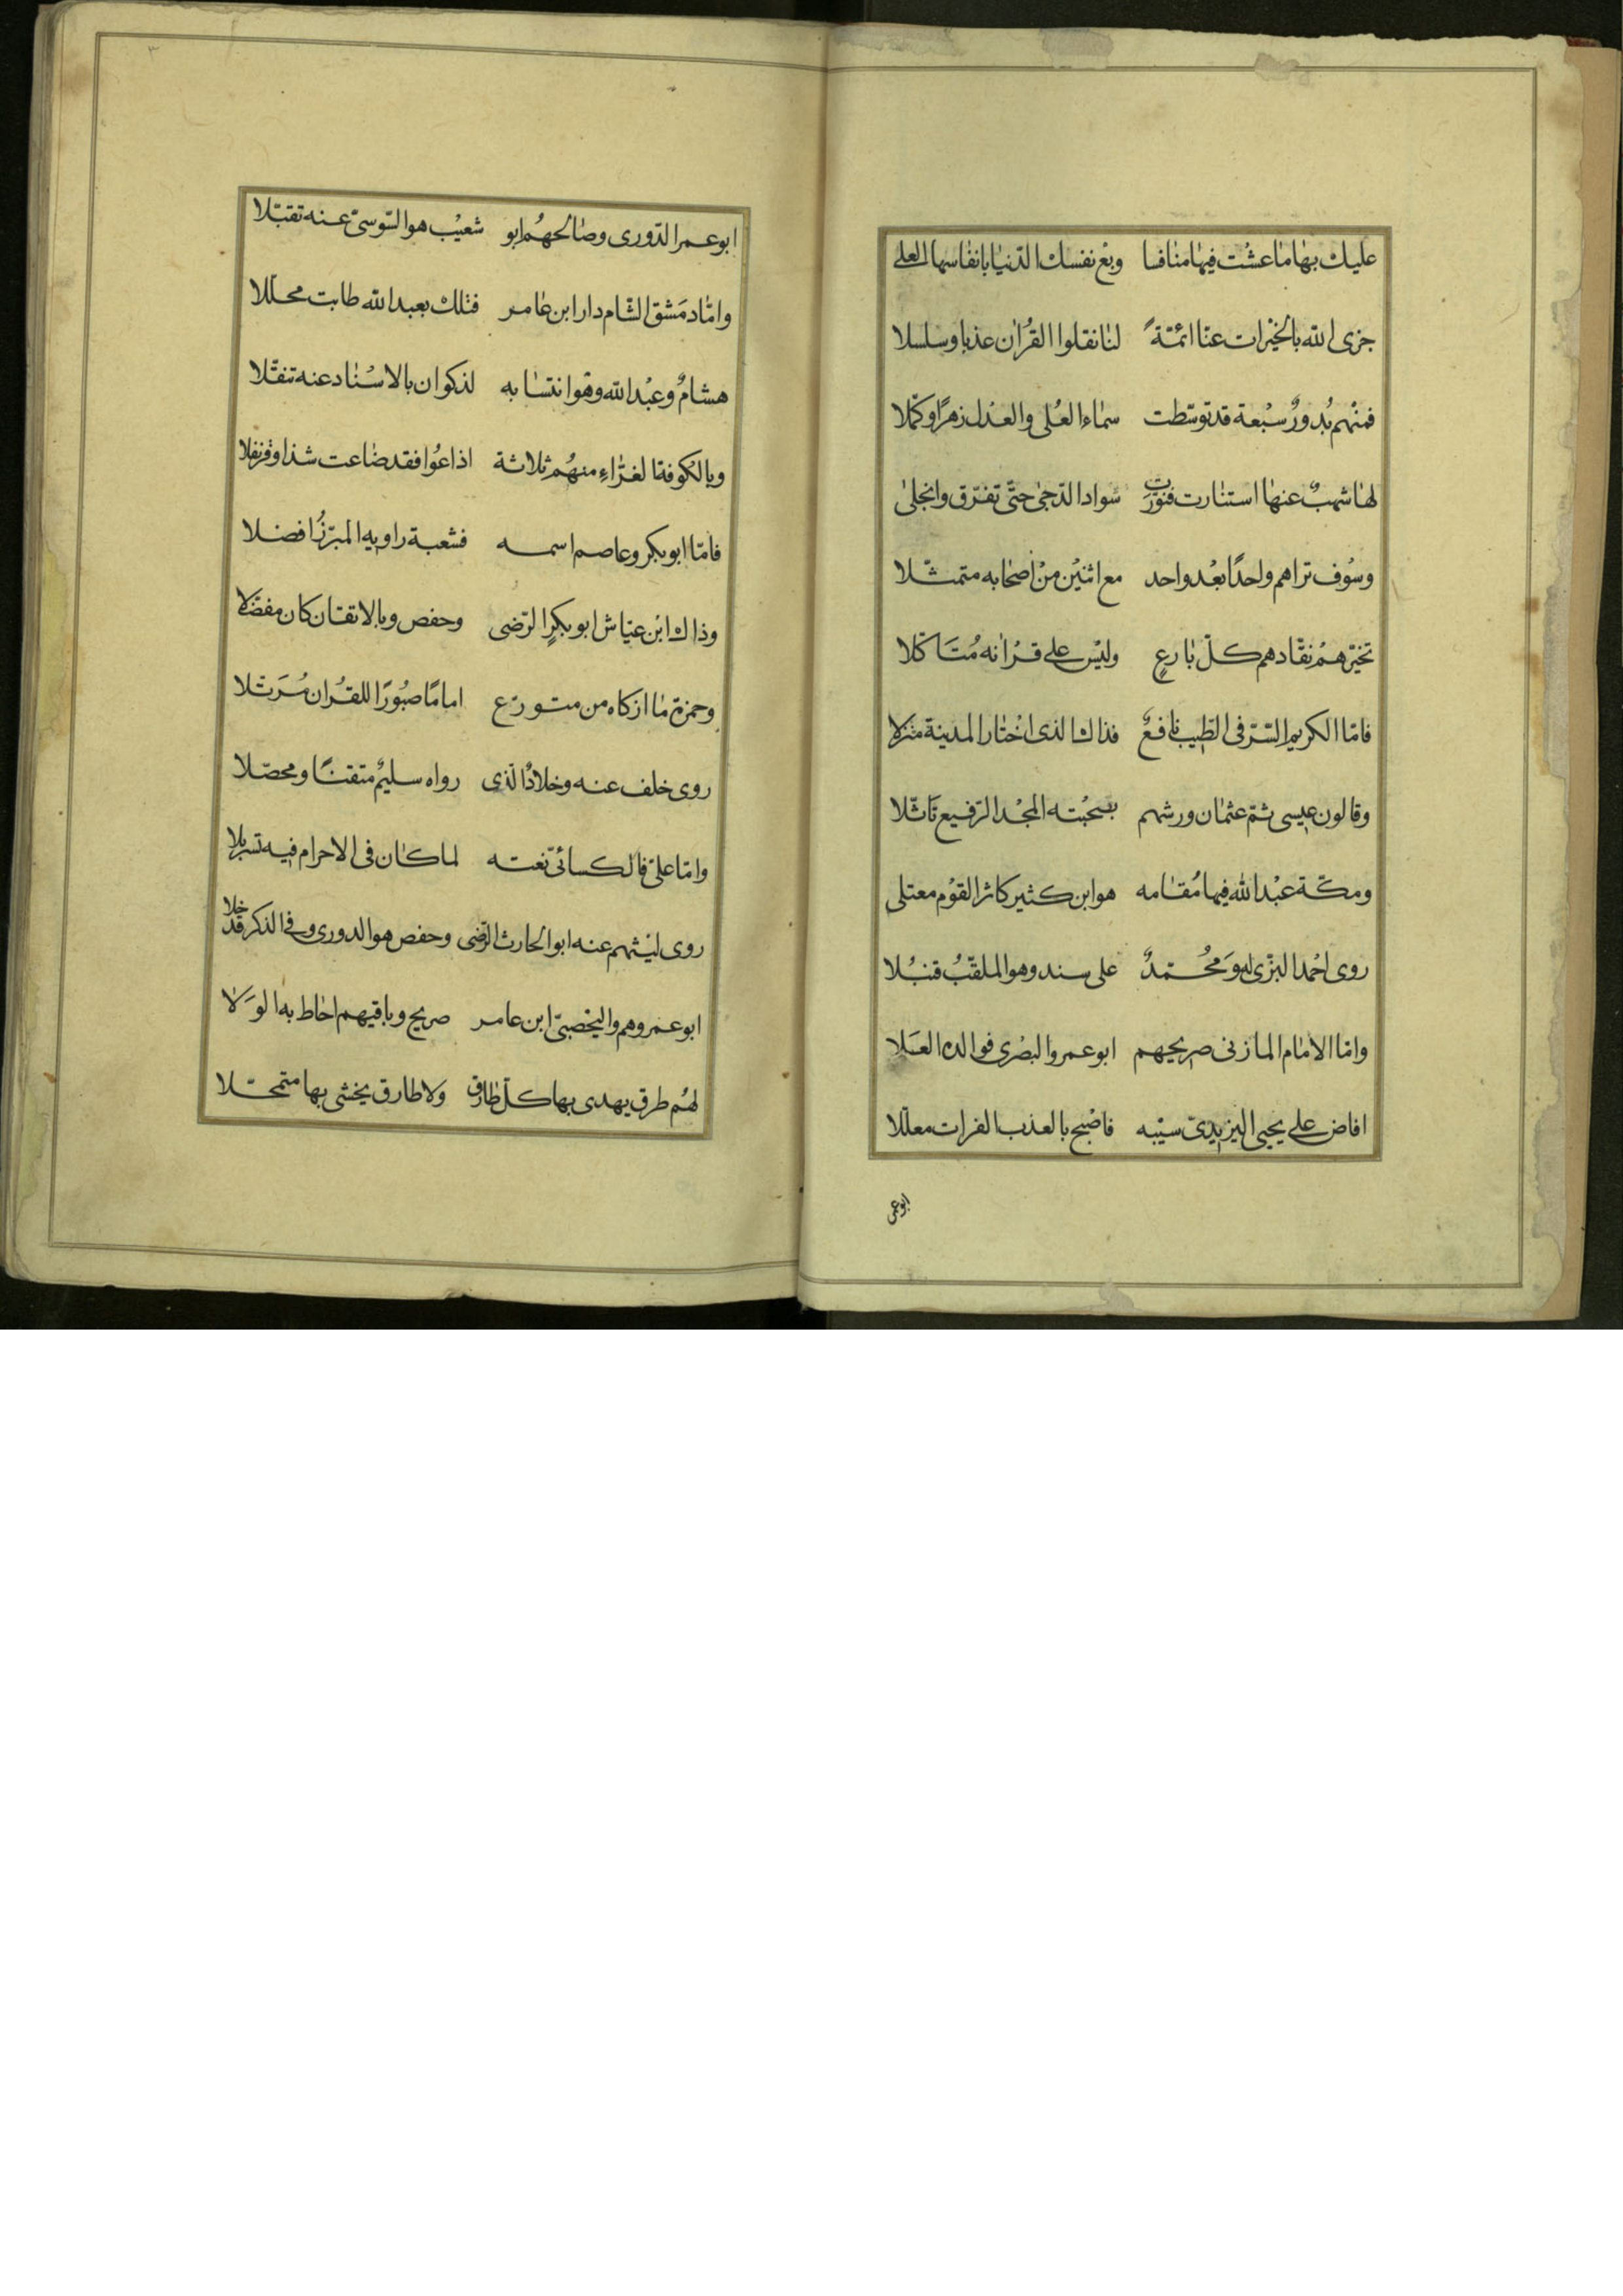 عليك بهاما عشت فيها منافسا وبع نفسك الدنيا بانفاسها العلى
جزى الله بالخيرات عنا ائمة لنا نقلوا القران عذبا وسلسلا
فمنهم بدور سبعة قد توسطت سماء العلى والعدل زهرا وكملا
لها شهب عنها استنارت فنورت سواد الدجى حتى تفرق وانجلى
وسوف تراهم واحدا بعد واحد مع اثنين من اصحابه متمثلا
تخيرهم نقادهم كل بارع وليس على قرانه متاكلا
فاما الكريم السر فى الطيب نافع فذاك الذى اختار المدينة منزلا
وقالون عيسى ثم عثمان ورشهم بصحبته المجد الرفيع تاثلا
ومكة عبد الله فيها مقامه هو ابن كثير كاثر القوم معتلى
روى احمد البزى له ومحمد على سند وهو الملقب قنبلا
واما الامام المازنى صريحهم ابو عمرو البصرى فوالده العلا
افاض على يحيى اليزيدى سيبه فاصبح بالعذب الفرات معللا
ابو عمر
٣
ابو عمر الدورى وصالحهم ابو شعيب هو السوسى عنه تقبلا
واما دمشق الشام دار ابن عامر فتلك بعبد الله طابت محللا
هشام وعبد الله وهو انتسابه لذكوان بالاسناد عنه تنقلا
وبالكوفة الغراء منهم ثلاثة اذاعوا فقد ضاعت شذا وقرنفلا
فاما ابو بكر وعاصم اسمه فشعبة راويه المبرز افضلا
وذاك ابن عياش ابو بكر الرضى وحفص وبالاتقان كان مفضلا
وحمزة ما ازكاه من متورع اماما صبورا للقران مرتلا
روى خلف عنه وخلاد الذى رواه سليم متقنا ومحصلا
واما على فالكسائى نعته لما كان فى الاحرام فيه تسربلا
روى ليثهم عنه ابو الحارث الرضى وحفص هو الدورى وفى الذكر قد خلا
ابو عمروهم واليحصبى ابن عامر صريح وباقيهم احاط به الولا
لهم طرق يهدى بها كل طارق ولا طارق يخشى بها متمحلا